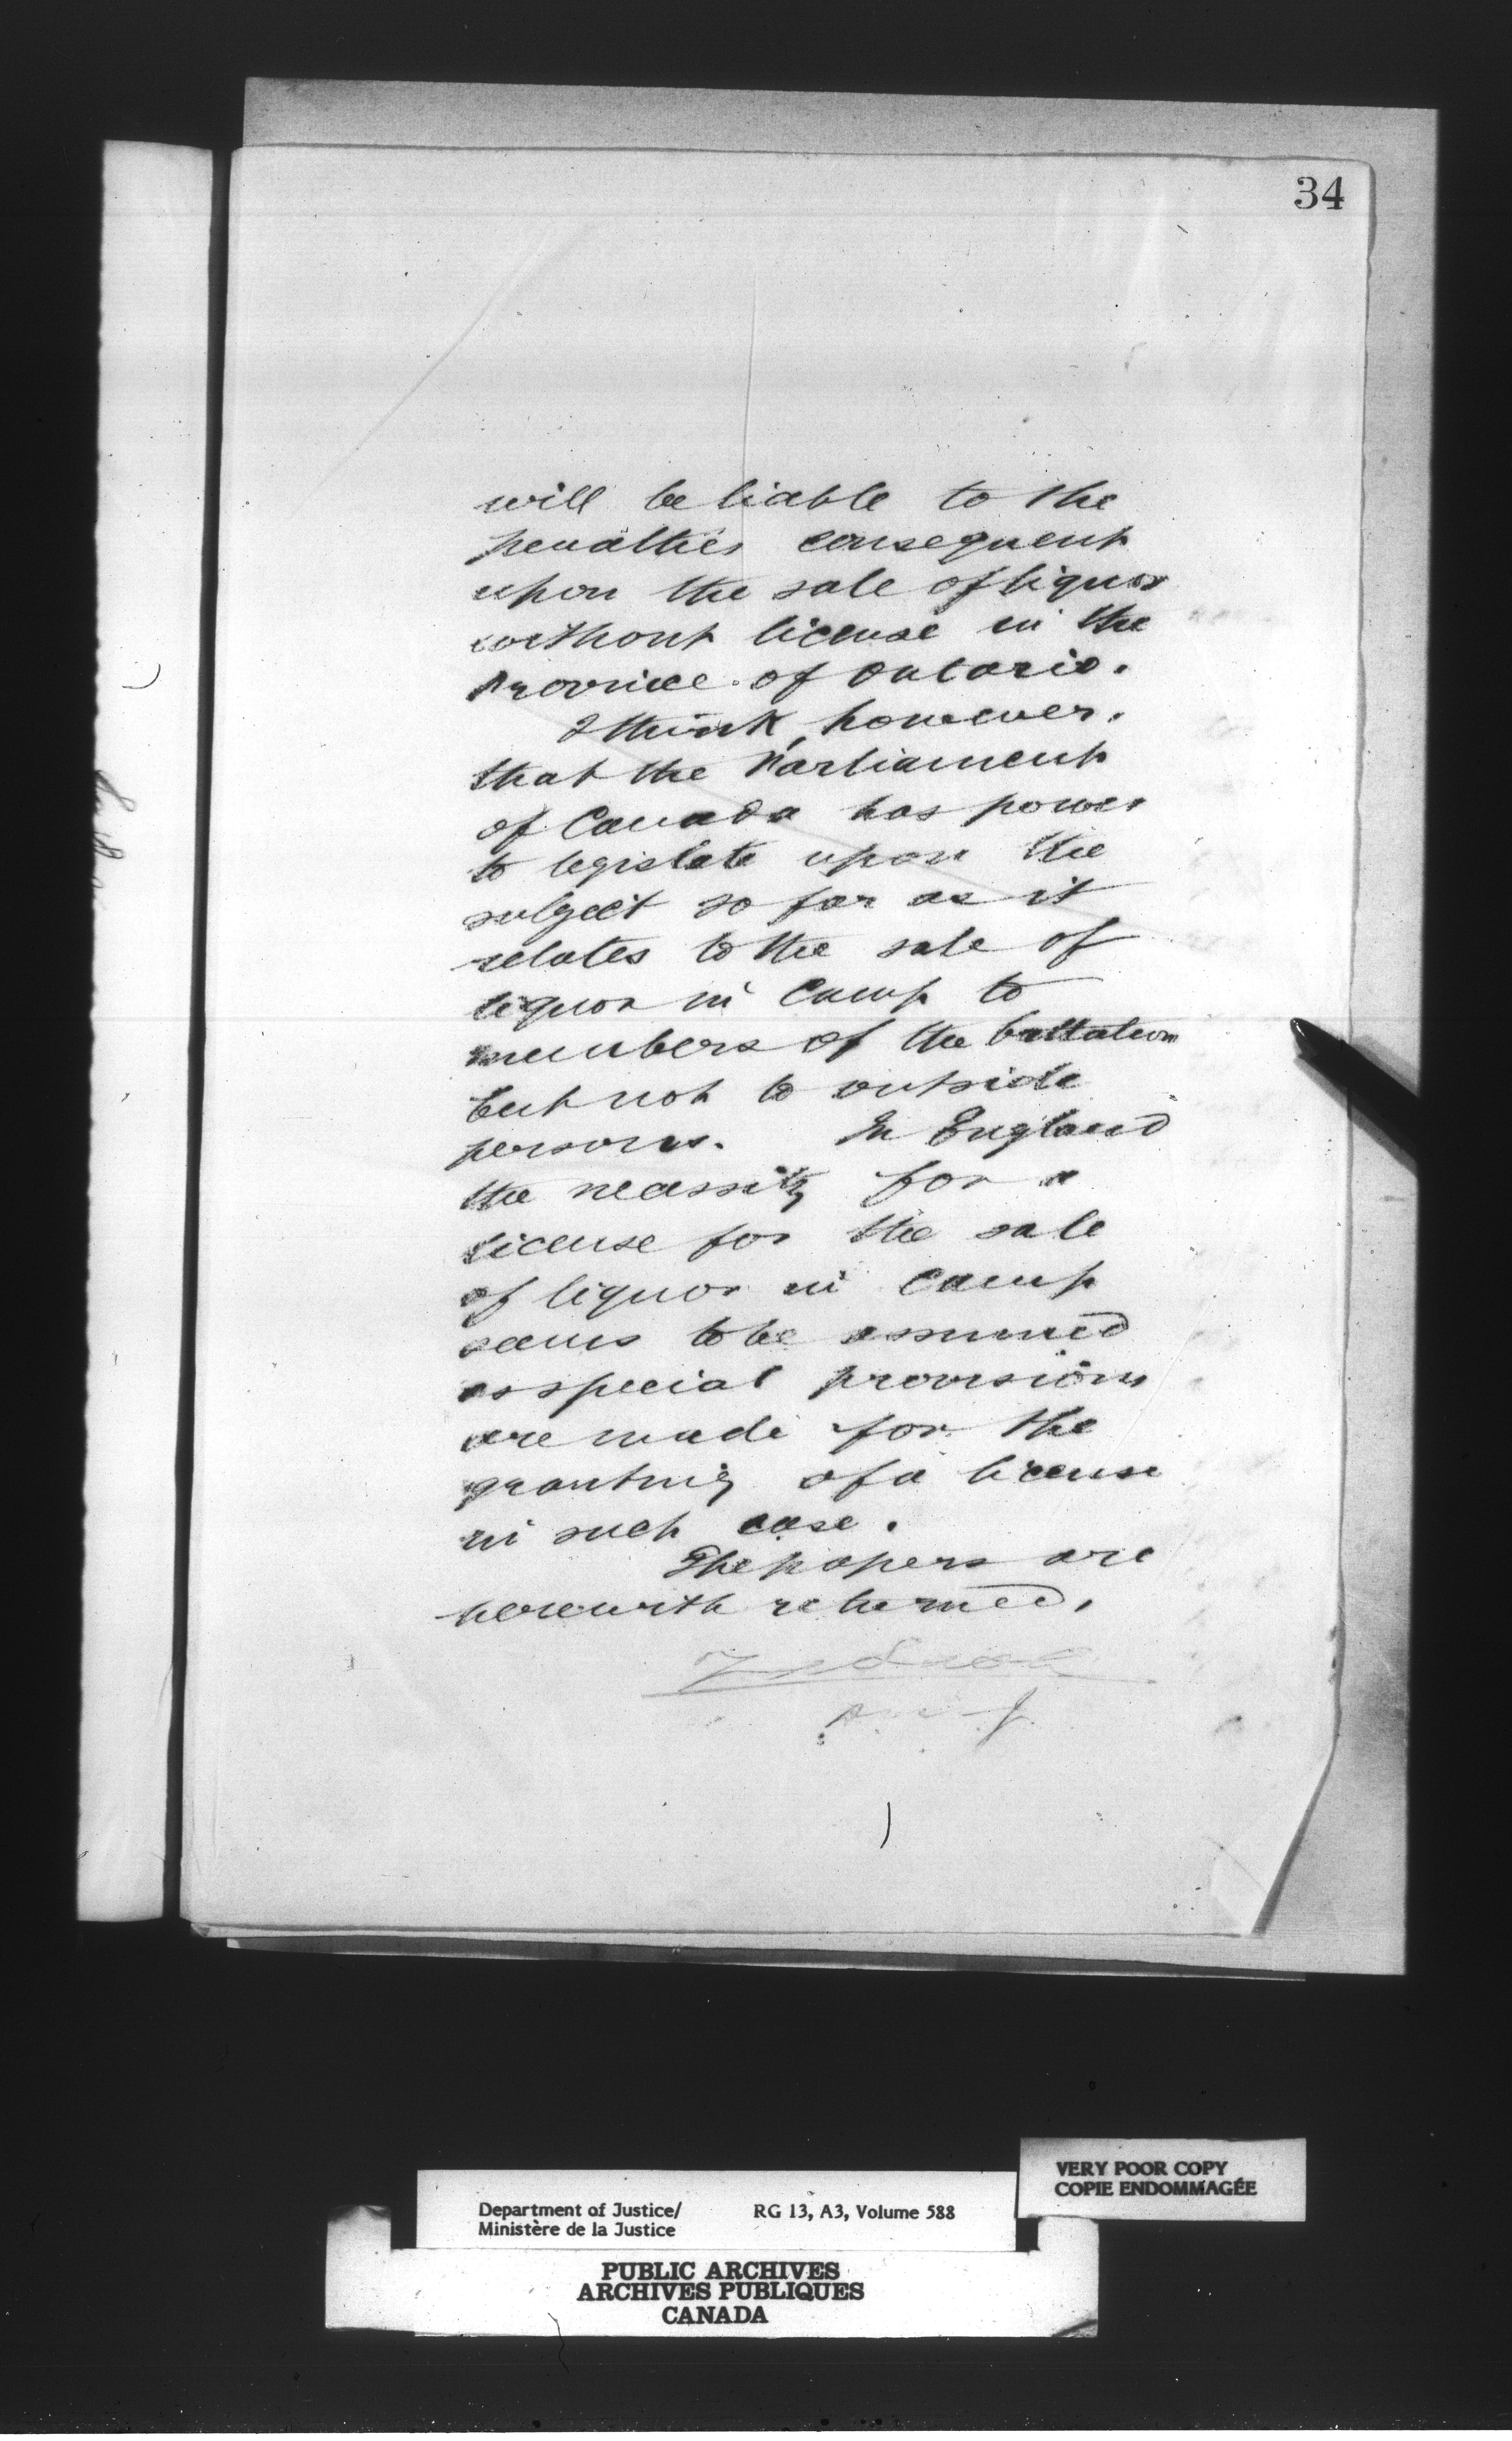 34
will be liable to the
penalties consequent
upon the sale of liquor
without license in the
Province of Ontario.
I think, however,
that the Parliament
of Canada has power
to legislate upon the
subject so far as it
relates to the sale of
liquor in Camp to
members of the battalion
but not to outside
persons. In England
the necessity for a
license for the sale
of liquor in Camp
seems to be assumed
as special provisions
are made for the
granting of a license
in such case.
The papers are
herewith returned.
VERY POOR COPY
COPIE ENDOMMAGÉE
Department of Justice/ RG 13, A3, Volume 588
Ministère de la Justice
PUBLIC ARCHIVES
ARCHIVES PUBLIQUES
CANADA